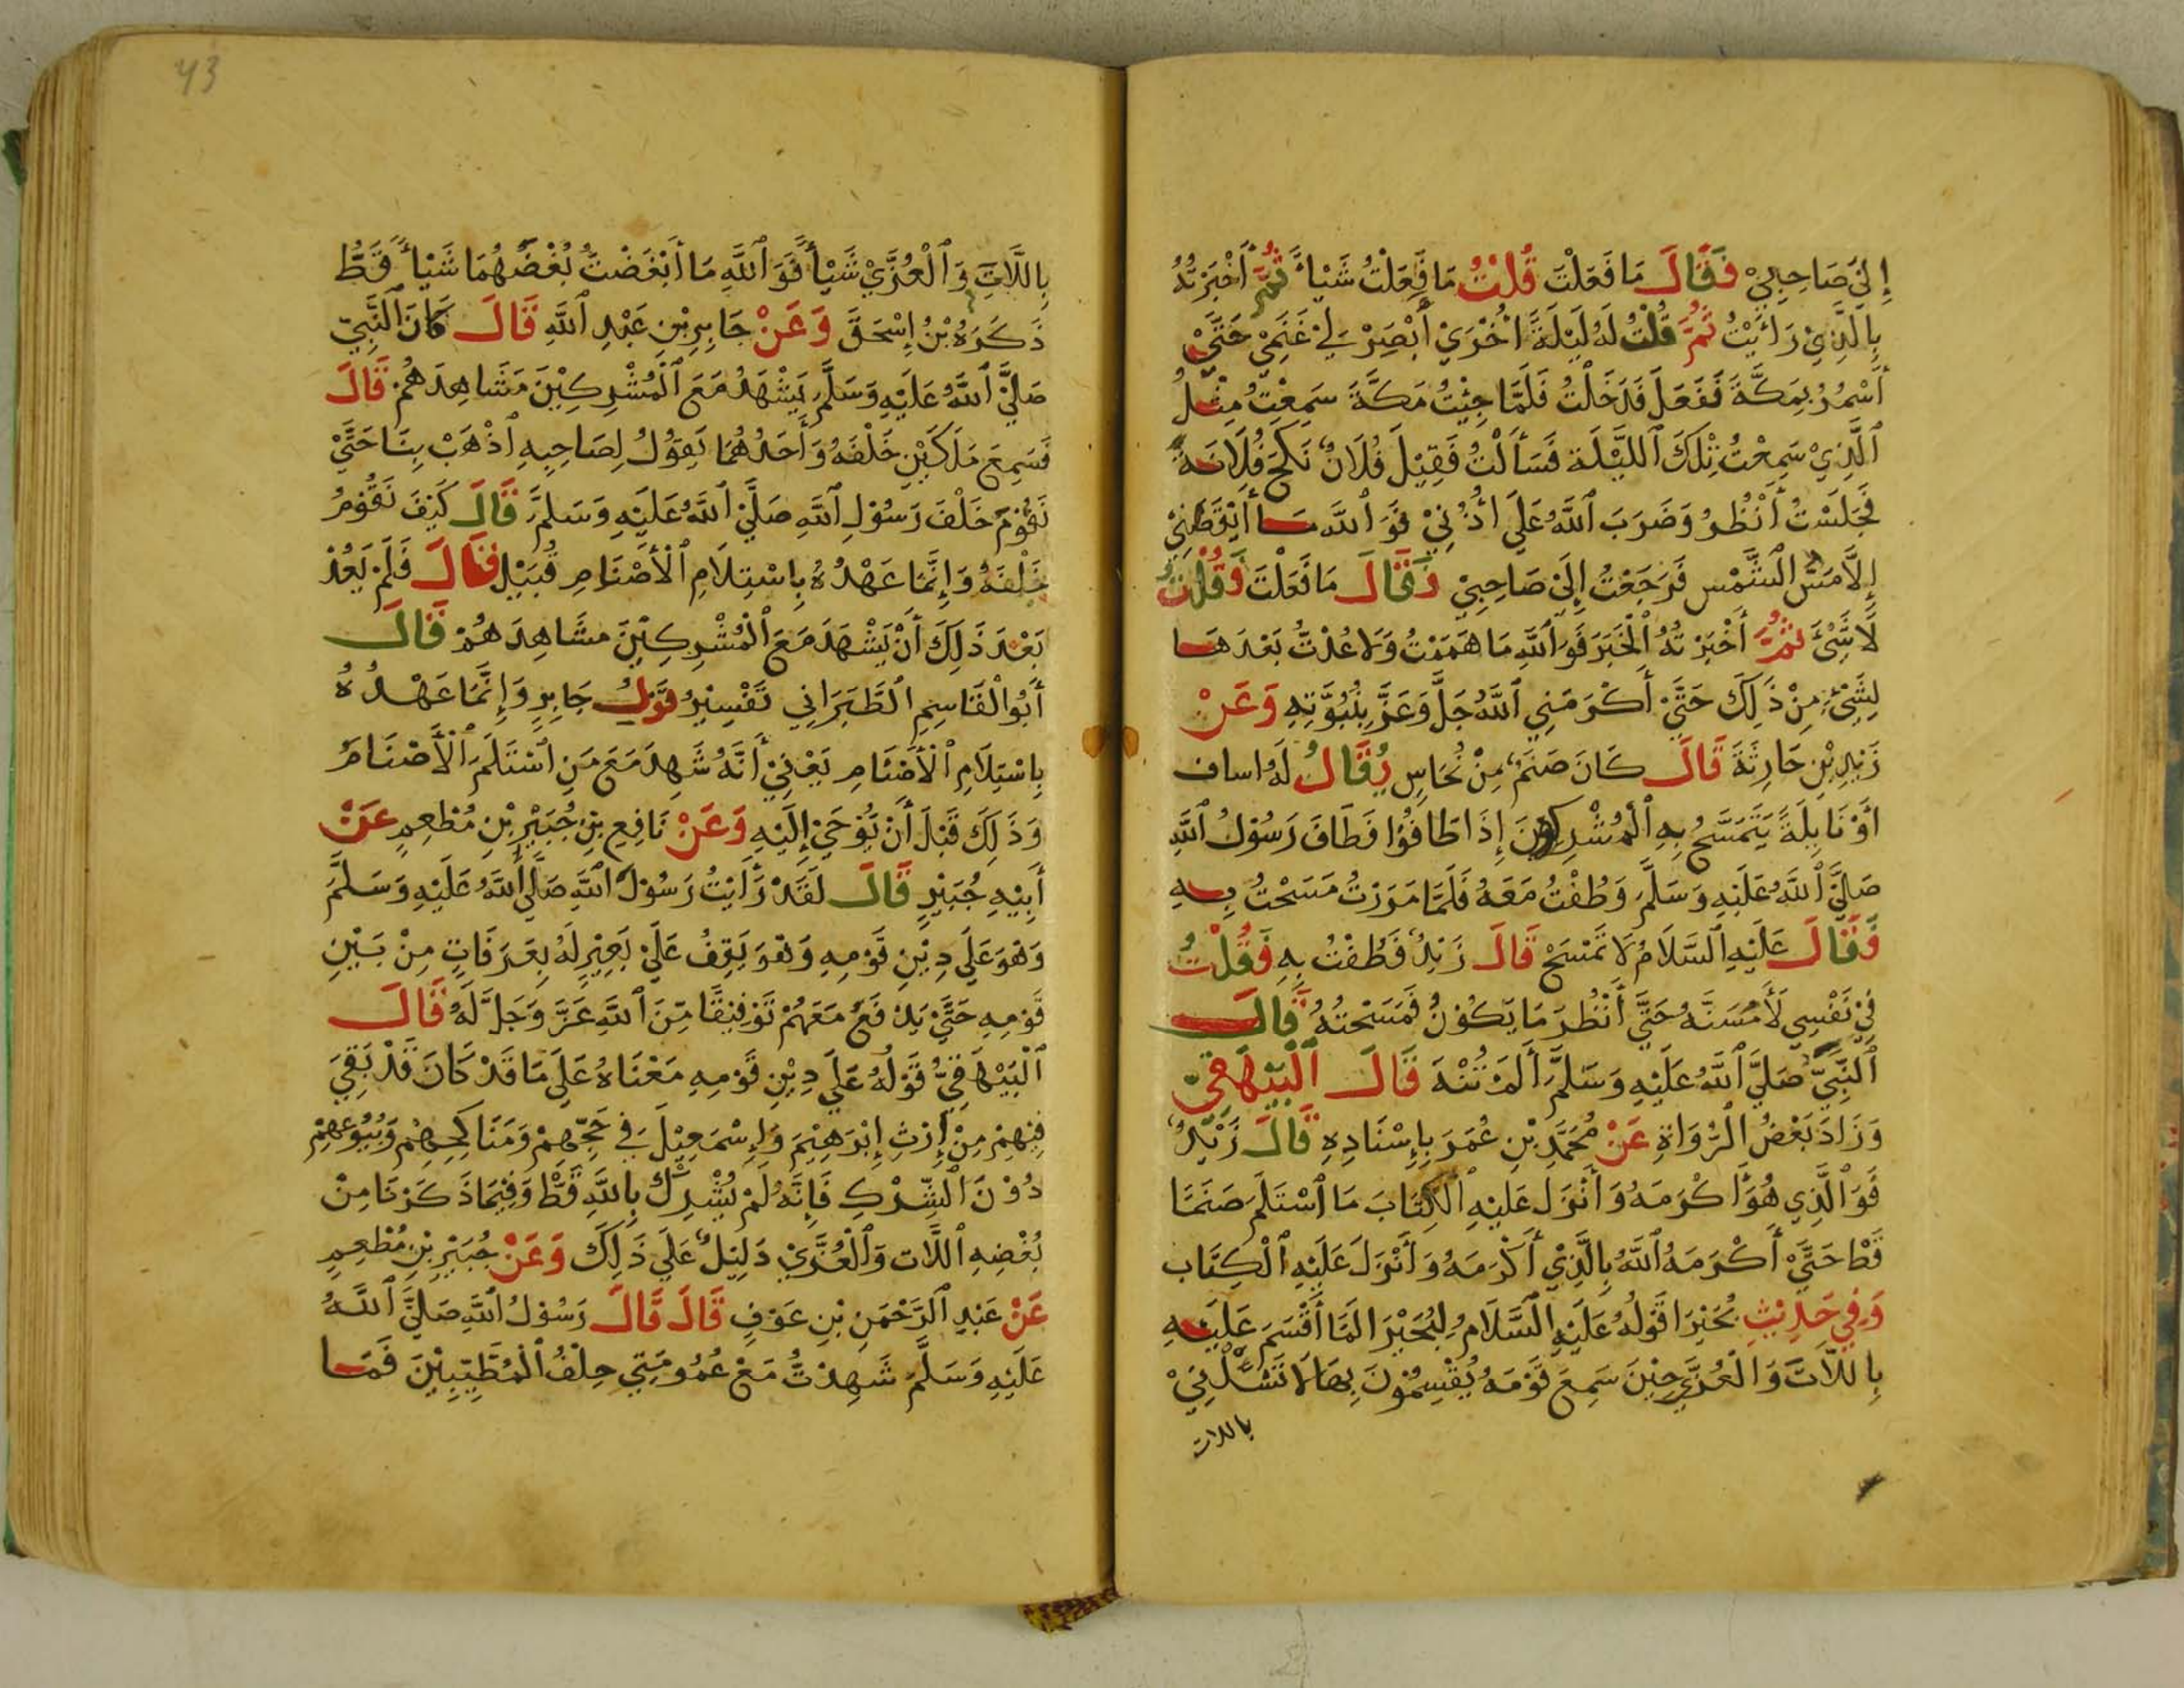 إِلَيَّ صَاحِبِيْ فَقَالَ مَا فَعَلْتَ قُلْتُ مَا فَعَلْتُ شَيْأً ثُمَّ أَخْبَرْتُهُ
بِالَّذِيْ رَأَيْتُ ثُمَّ قُلْتُ لَهُ لَيْلَةً أُخْرَيْ أَبْصِرْ لِيْ غَنَمِيْ حَتَّيْ
أَسْمُرُ بِمَكَّةَ فَفَعَلَ فَدَخَلْتُ فَلَمَّا جِئْتُ مَكَّةَ سَمِعْتُ مِثْلُ
ٱلَّذِيْ سَمِعْتُ تِلْكَ ٱللَّيْلَةَ فَسَأَلْتُ فَقِيْلَ فُلَانٌ نَكَحَ فُلَانَةً
فَجَلَسْتُ أَنْظُرُ وَضَرَبَ ٱللَّهُ عَلَي اُذُنِيْ فَوَ ٱللَّهِ مَا أَيْقَظَنِيْ
إِلَّا مَسُّ ٱلشَّمْسِ فَرَجَعْتُ إِلَيْ صَاحِبِيْ فَقَالَ مَا فَعَلْتَ فَقُلْتُ
لَا شَيْءَ ثُمَّ أَخْبَرْتُهُ ٱلْخَبَرَ فَوَٱللَّهِ مَا هَمَمْتُ وَلَا عُدْتُ بَعْدَهَا
لِشَيْءٍ مِنْ ذَلِكَ حَتَّيْ أَكْرَمَنِي ٱللَّهُ جَلَّ وَعَزَّ بِنُبُوَّتِهِ وَعَنْ
زَيْدِ بْنِ حَارِثَةَ قَالَ كَانَ صَنَمٌ مِنْ نُحَاسٍ يُقَالُ لَهُ اساف
أَوْ نَايِلَةً يَتَمَسَّحُ بِهِ ٱلْمُشْرِكُوْنَ إِذَا طَافُوْا فَطَافَ رَسُوْلُ ٱللَّهِ
صَلَّيَ ٱللَّهُ عَلَيْهِ وَسَلَّمَ وَطُفْتُ مَعَهُ فَلَمَّا مَرَرْتُ مَسَحْتُ بِهِ
فَقَالَ عَلَيْهِ ٱلسَّلَامُ لَا تَمْسَحْ قَالَ زَيْدٌ فَطُفْتُ بِهِ فَقُلْتُ
فِيْ نَفْسِي لَأَمَسَّنَّهُ حَتَّيَ أَنْظُرَ مَا يَكُوْنُ فَمَسَحْتُهُ فَقَالَ
ٱلنَّبِيُّ صَلَّيَ ٱللَّهُ عَلَيْهِ وَسَلَّمَ أَلَمْ تُنْهَ قَالَ ٱلْبَيْهَقِيّ
وَزَادَ بَعْضُ ٱلرُّوَاةِ عَنْ مُحَمَّدِ بْنِ عُمَرَ بِإِسْنَادِهِ قَالَ زَيْدٌ
فَوَ ٱلَّذِي هُوَ أَكْرَمَهُ وَأَنْزَلَ عَلَيْهِ ٱلْكِتَابَ مَا ٱسْتَلَمَ صَنَمًا
قَطْ حَتَّيْ أَكْرَمَهُ ٱللَّهُ بِالَّذِيْ أَكْرَمَهُ وَأَنْزَلَ عَلَيْهِ ٱلْكِتَاب
وَفِي حَدِيْثِ بُحَيْرَا قَوْلُهُ عَلَيْهِ ٱلسَّلَامُ لِبُحَيْرَا لَمَّا أَقْسَمَ عَلَيْهِ
بِاللَّاتَ وَالْعُزَّيَ حِيْنَ سَمِعَ قَوْمَهُ يُقْسِمُوْنَ بِهَا لَا تَسْئَلْنِيْ
باللات
43
بِاللَّاتِ وَٱلْعُزَّيْ شَيْأً فَوَ ٱللَّهِ مَا أَبْغَضْتُ بُغْضَهُمَا شَيْأً قَطُّ
ذَكَرَهُ بْنُ إِسْحَقَ وَعَنْ جَابِرِ بْنِ عَبْدِ ٱللَّهِ قَالَ كَانَ ٱلنَّبِيّ
صَلَّيَ ٱللَّهُ عَلَيْهِ وَسَلَّمَ يَشْهَدُ مَعَ ٱلْمُشْرِكِيْنَ مَشَاهِدَهُمْ قَالَ
فَسَمِعَ مَلَكَيْنِ خَلْفَهُ وَأَحَدُهُمَا يَقُوْلُ لِصَاحِبِهِ ٱذْهَبْ بِنَا حَتَّيْ
نَقُوْمَ خَلْفَ رَسُوْلِ ٱللَّهِ صَلَّيَ ٱللَّهُ عَلَيْهِ وَسَلَّمَ قَالَ كَيْفَ نَقُوْمُ
خَلْفَهُ وَإِنَّمَا عَهْدُهُ بِاسْتِلَامِ ٱلْأَصْنَامِ قُبَيْلُ فَقَالَ فَلَمْ يَعُدْ
بَعْدَ ذَلِكَ أَنْ يَشْهَدَ مَعَ ٱلْمُشْرِكِيْنَ مشَاهِدَهُمْ قَالَ
أَبُوْ الْقَاسِمِ ٱلطَّبَرَانِي تَفْسِيْرُ قَوْلُ جَابِرٍ وَإِنَّمَا عَهْدُهُ
بِاسْتِلَامِ ٱلْأَصْنَامِ يَعْنِيْ أَنَّهُ شَهِدَ مَعَ مَنِ ٱسْتَلَمَ ٱلْأَصْنَامَ
وَذَلِكَ قَبْلَ أَنْ يُوْحَيْ إِلَيْهِ وَعَنْ نَافِعِ بْنِ جُبَيْرِ بْنِ مُطْعِمٍ عَنْ
أَبِيْهِ جُبَيْرٍ قَالَ لَقَدْ رَأَيْتُ رَسُوْلَ ٱللَّهِ صَلَّي ٱللَّهُ عَلَيْهِ وَسَلَّمَ
وَهُوَ عَلَي دِيْنِ قَوْمِهِ وَهُوَ يَقِفُ عَلَيْ بَعِيْرٍ لَهُ بِعَرَفَاتٍ مِنْ بَيْنِ
قَوْمِهِ حَتَّيْ يَدْفَعَ مَعَهُمْ تَوْفِيْقًا مِّنَ ٱللَّهِ عَزَّ وَجَلَّ لَهُ قَالَ
ٱلْبَيْهَقِيُّ قَوْلُهُ عَلَي دِيْنِ قَوْمِهِ مَعْنَاهُ عَلَي مَا قَدْ كَانَ قَدْ بَقِيَ
فِيْهِمْ مِنْ إِرْثِ إِبْرَهِيْمَ وَإِسْمَعِيْلَ فِي حَجِّهِمْ وَمَنَاكِحِهِمْ وَبُيُوْعِهِمْ
دُوْنَ ٱلشِّرْكِ فَإِنَّهُ لَمْ يُشْرِكْ بِاللَّهِ قَطُّ وَفِيْمَا ذَكَرْنَا مِنْ
بُغْضِهِ ٱللَّاتَ وَٱلْعُزَّيْ دَلِيْلٌ عَلَي ذَلِكَ وَعَنْ جُبَيْرِ بْنِ مُطْعِمٍ
عَنْ عَبْدِ ٱلرَّحْمَنِ بْنِ عَوْفٍ قَالَ قَالَ رَسُوْلُ ٱللَّهِ صَلَّيَ ٱللَّهُ
عَلَيْهِ وَسَلَّمَ شَهِدْتُ مَعْ عُمُوْمَتِي حِلْفُ ٱلْمُطَيَّبِيْنَ فَمَا